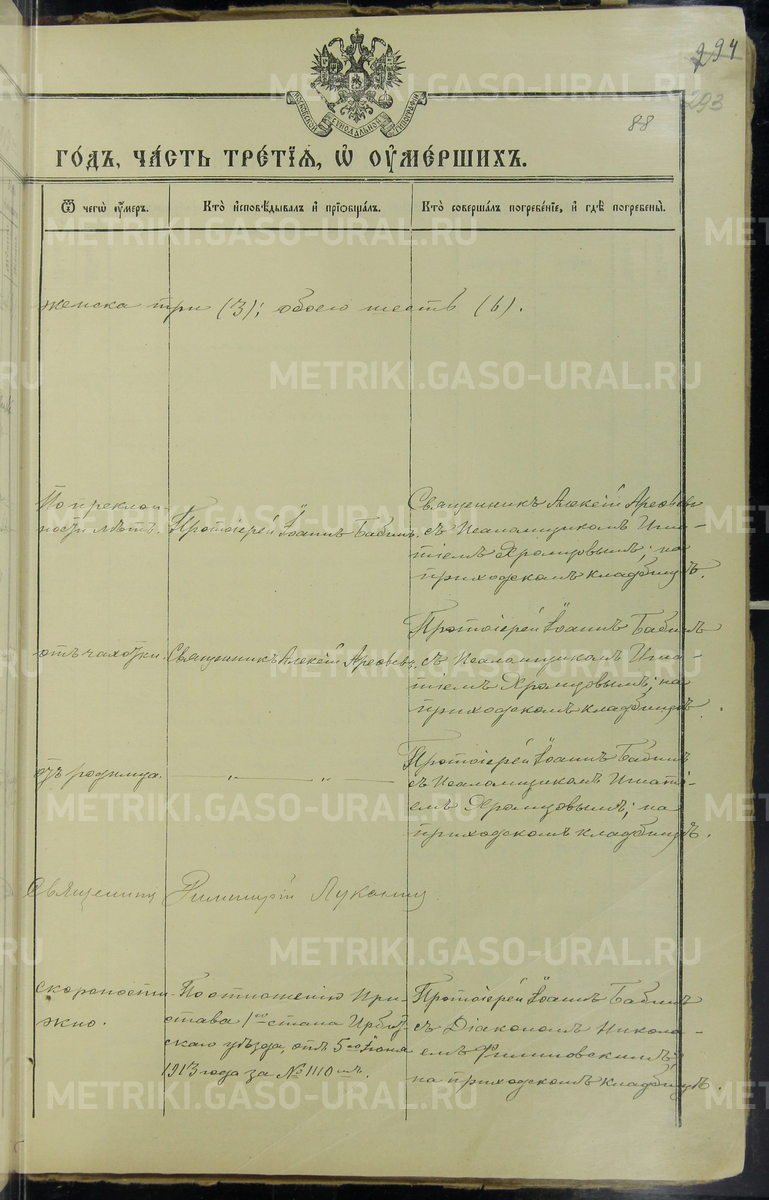 294
293
88
МОСКОВСКОЙ СѴНОДАЛЬНОЙ ТИПОГРАФІИ
ГО́ДЪ, ЧА́СТЬ ТРЕ́ТІѦ, Ѡ҆ ОУ҆МЕ́РШИХЪ.
Ѿ чегѡ̀ оу҆́меръ.
Кто̀ и҆сповѣ́дывалъ и҆ прїѡбща́лъ.
Кто̀ соверша́лъ погребе́нїе, и҆ гдѣ̀ погребены̀.
женска три (3); обоего шесть (6).
По преклон-
ности лѣтъ.
Протоіерей Іоаннъ Бабинъ.
Священникъ Алексій
съ Псаломщикомъ Игна-
тіемъ Хромцовымъ; на
приходскомъ кладбищѣ.
отъ чахотки.
Священникъ Алексій
Протоіерей Іоаннъ Бабинъ
съ Псаломщикомъ Игна-
тіемъ Хромцовымъ; на
приходскомъ кладбищѣ.
отъ родимца.
— „ — „ —
Протоіерей Іоаннъ Бабинъ
съ Псаломщикомъ Игнаті-
емъ Хромцовымъ; на
приходскомъ кладбищѣ.
Священникъ Луканинъ
скоропости-
жно.
По отношенію При-
става 1го стана Ирбит-
скаго уѣзда, отъ 5го Іюня
1913 года за № 1110мъ.
Протоіерей Іоаннъ Бабинъ
съ Діакономъ Никола-
емъ Филипповскимъ;
на приходскомъ кладбищѣ.
METRIKI.GASO-URAL.RU